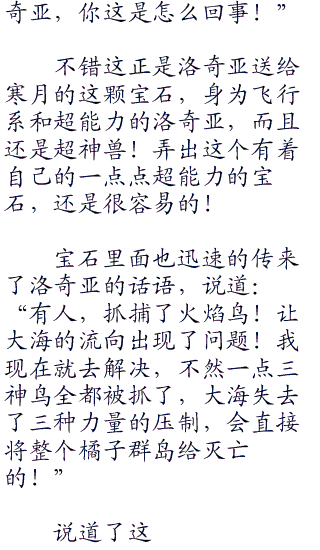 奇亚，你这是怎么回事！”
不错这正是洛奇亚送给
寒月的这颗宝石，身为飞行
系和超能力的洛奇亚，而且
还是超神兽！弄出这个有着
自己的一点点超能力的宝
石，还是很容易的！
宝石里面也迅速的传来
了洛奇亚的话语，说道：
“有人，抓捕了火焰鸟！让
大海的流向出现了问题！我
现在就去解决，不然一点三
神鸟全都被抓了，大海失去
了三种力量的压制，会直接
将整个橘子群岛给灭亡
的！”
说道了这